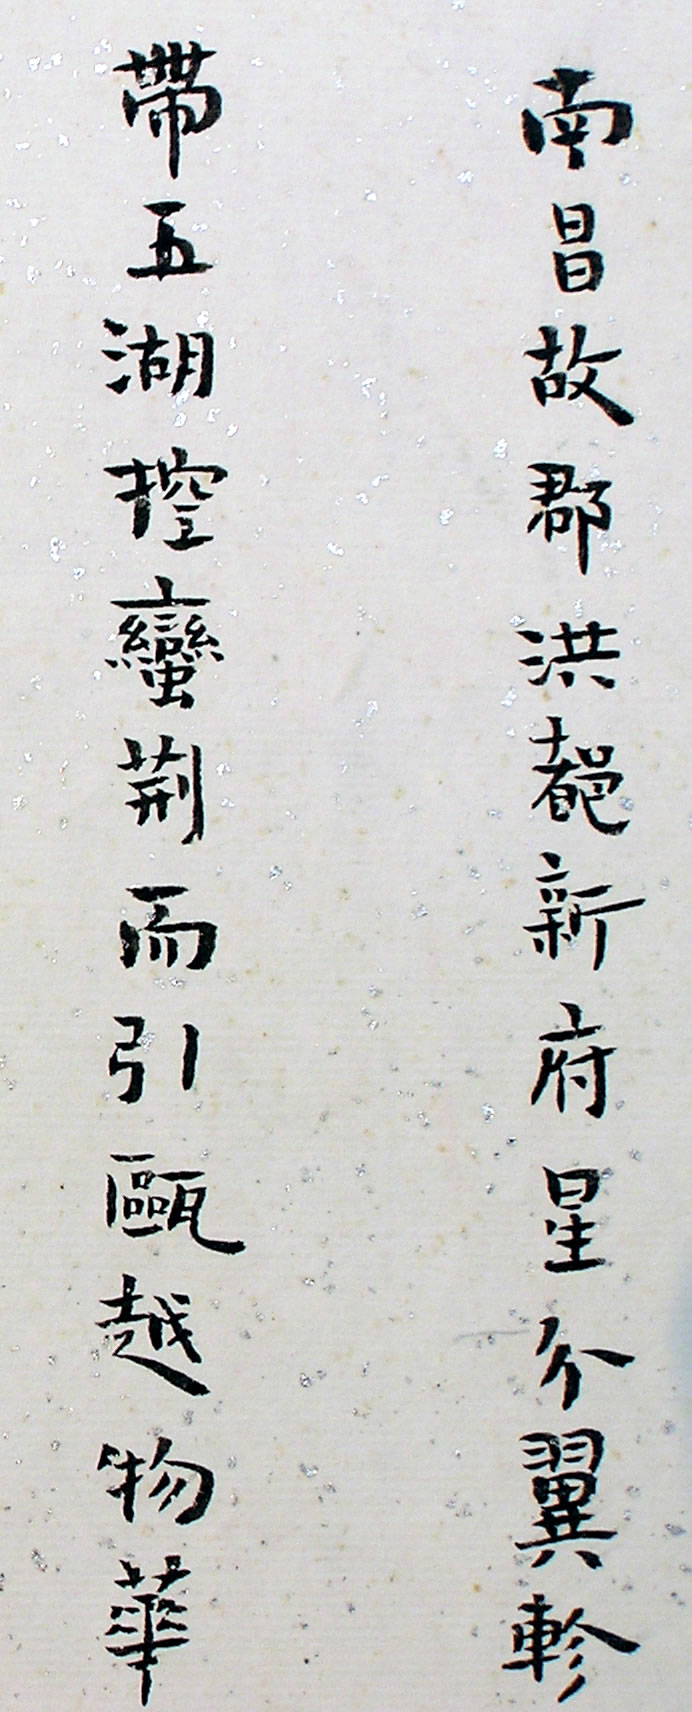 南昌故郡洪都新府星分翼軫
帶五湖控蠻荆而引甌越物華